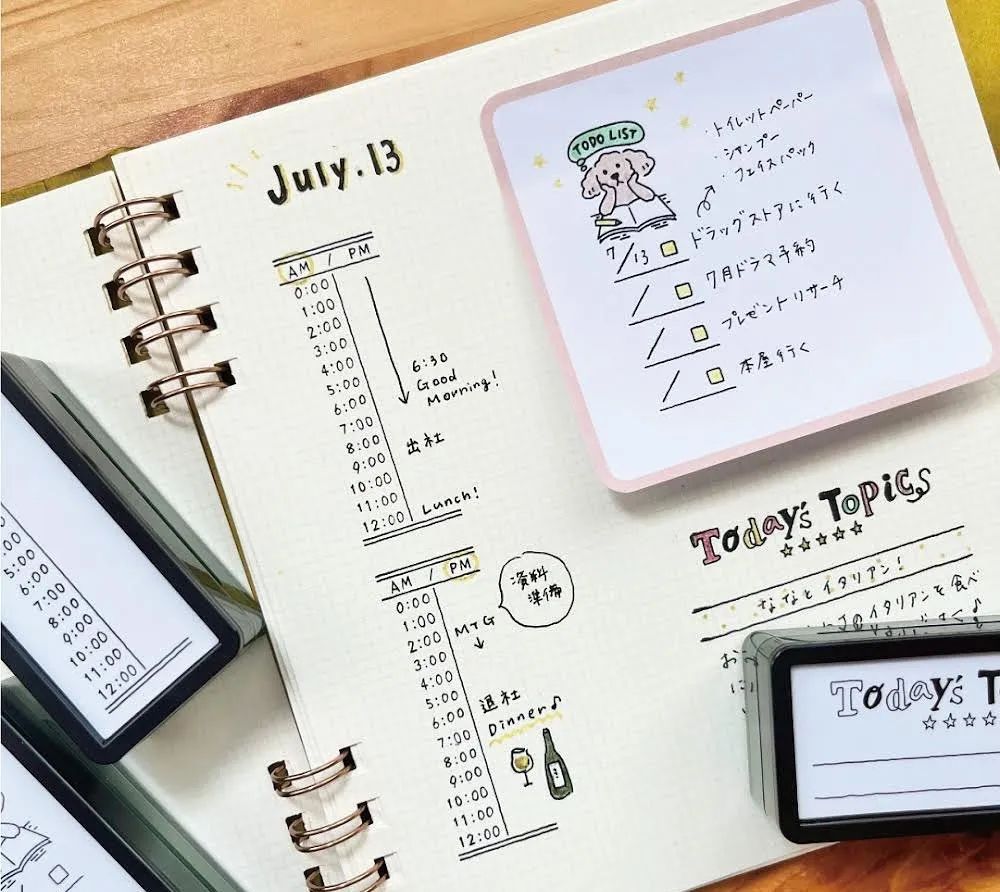 July.13
AM / PM
0:00
1:00
2:00
3:00
4:00
5:00
6:00
7:00
8:00
9:00
10:00
11:00
12:00
6:30
Good
Morning!
出社
Lunch!
AM / PM
0:00
1:00
2:00
3:00
4:00
5:00
6:00
7:00
8:00
9:00
10:00
11:00
12:00
資料
準備
MTG
退社
Dinner♪
TODO LIST
・トイレットペーパー
・シャンプー
・フェイスパック
7/13 ドラッグストアに行く
/ 7月ドラマ予約
/ プレゼントリサーチ
/ 本屋行く
Today's Topics
☆☆☆☆☆
ななとイタリアン!
のイタリアンを食べ
5:00
6:00
7:00
8:00
9:00
10:00
11:00
12:00
Today's T
☆☆☆☆